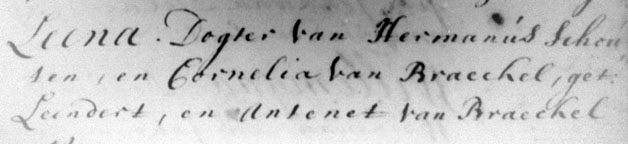 Leena. Dogter van Hermanús Schoú
ten, en Cornelia van Braeckel, get:
Leendert, en Antenet van Braeckel